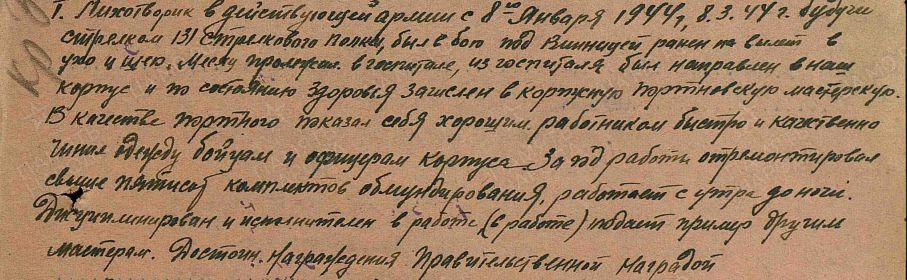 Т. Лихотворик в действующей армии с 8го Января 1944г, 8.3.44 г. будучи
стрелком 131 Стрелкового Полка, был в бою под Винницей ранен на вылет в
ухо и щек. Месяц пролежал в госпитале, из госпиталя был направлен в наш
корпус и по состоянию здоровья зачислен в корпусную портновскую мастерскую.
В качестве портного показал себя хорошим работником быстро и качственно
чинил одежду бойцам и офицерам корпуса. За год работы отремонтировал
свыше пятисот комплектов обмундирования, работает с утра до ночи.
Дисциплинирован и исполнителен в работе (в работе) подает пример другим
мастерам. Достоин Награждения Правительственной Наградой